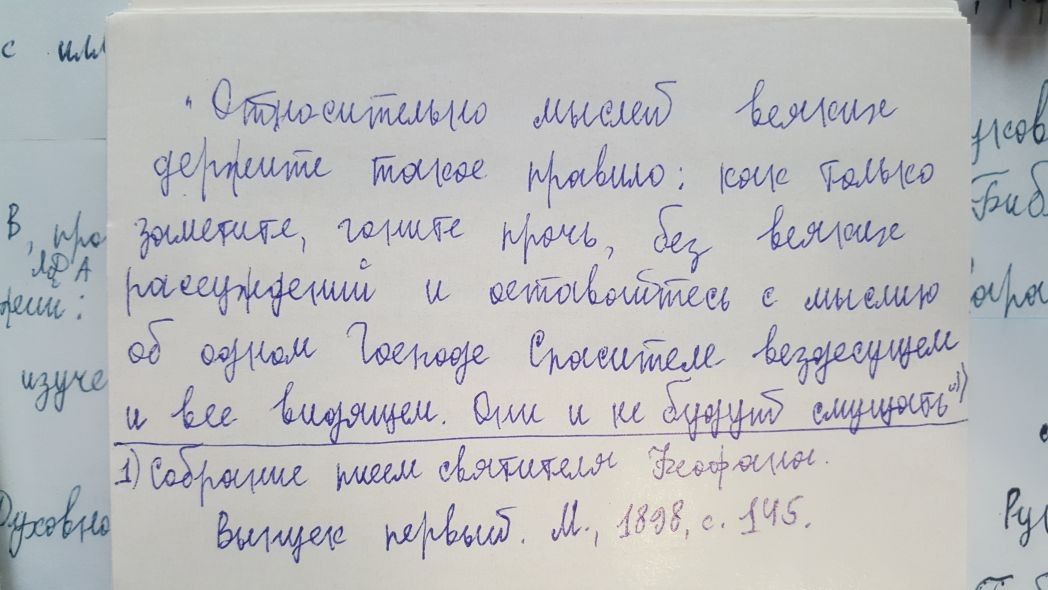 с илл
"Относительно мыслей всяких
держите такое правило: как только
заметите, гоните прочь, без всяких
рассуждений и оставайтесь с мыслию
об одном Господе Спасителе вездесущем
и все видящем. Они и не будут смущать" 1)
1) Собрание писем святителя Феофана.
Выпуск первый. М., 1898, с. 145.
В, про
А
жии:
изуче
Духовно
уков
Биб
ара
Рус